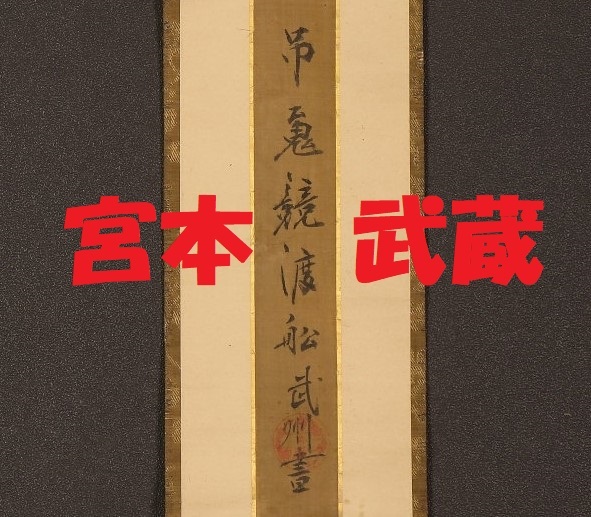 宮本 武蔵
吊鬼競渡船武州書